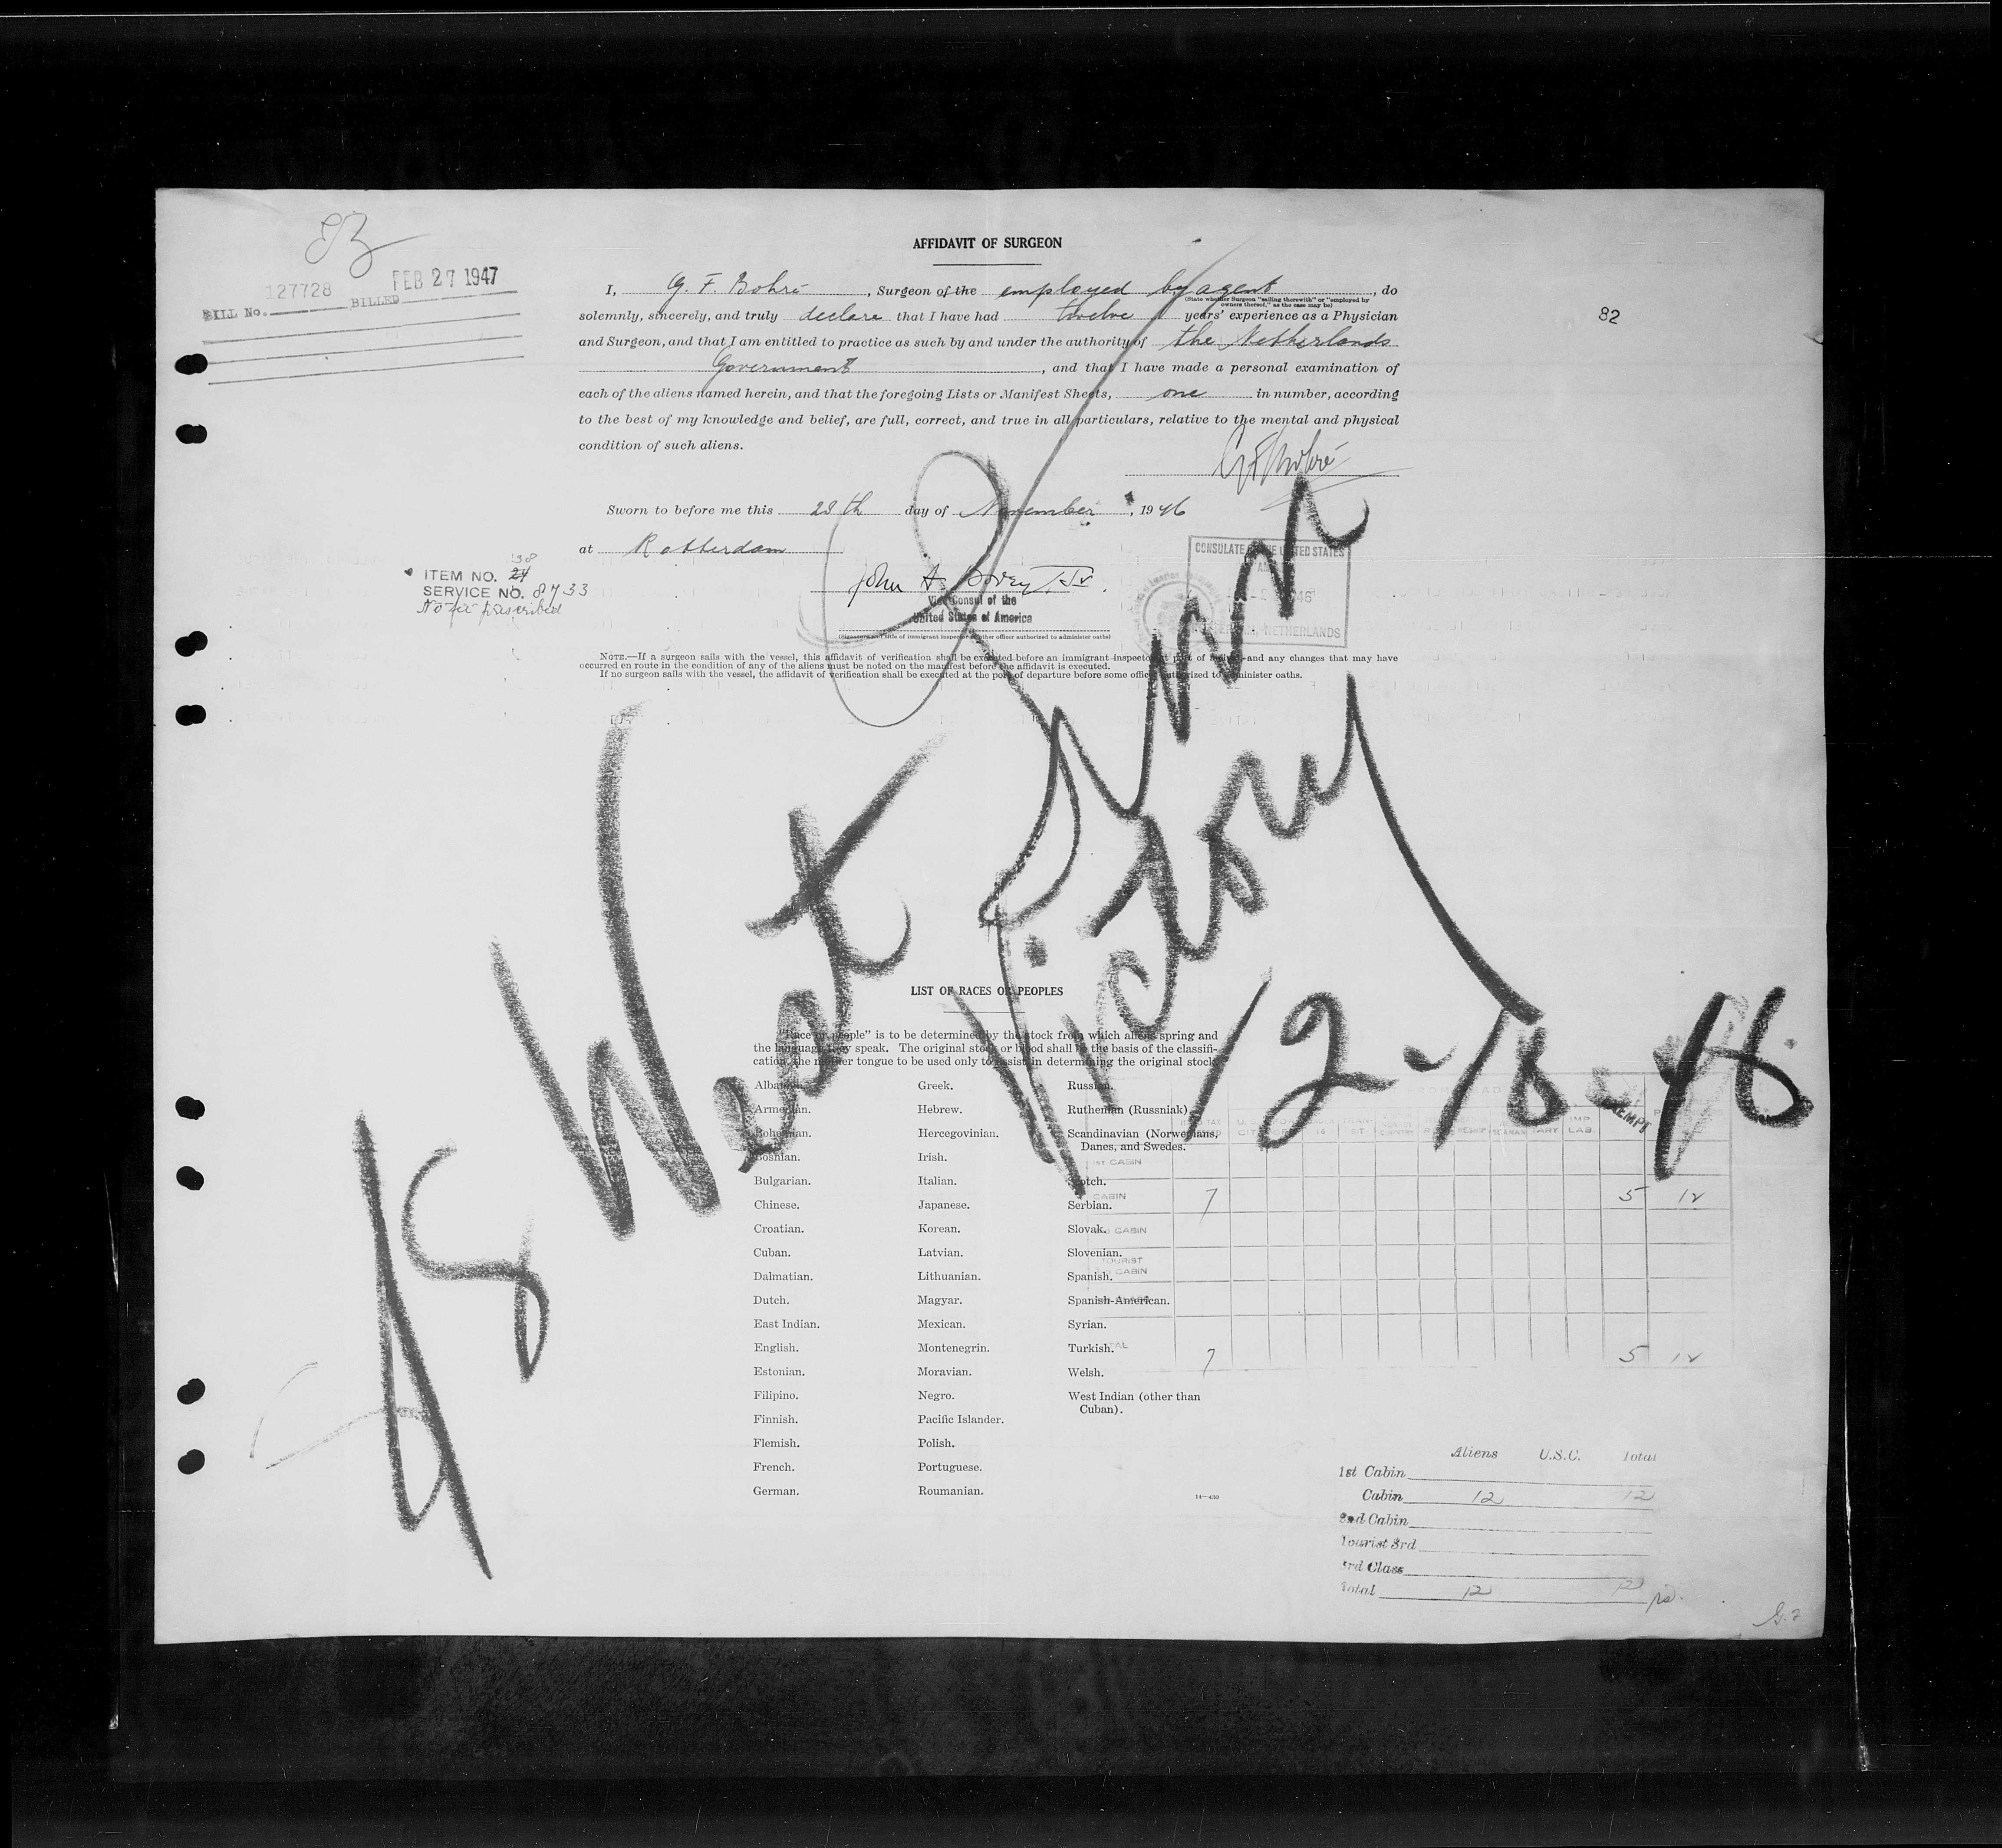 AFFIDAVIT OF SURGEON
BILL No. 127728 BILLED FEB 27 1947
82
I, G. F. Bohré, Surgeon of the employed by agent, do
(State whether Surgeon "sailing therewith" or "employed by
owners thereof," as the case may be)
solemnly, sincerely, and truly declare that I have had twelve years' experience as a Physician
and Surgeon, and that I am entitled to practice as such by and under the authority of the Netherlands
Government, and that I have made a personal examination of
each of the aliens named herein, and that the foregoing Lists or Manifest Sheets, one in number, according
to the best of my knowledge and belief, are full, correct, and true in all particulars, relative to the mental and physical
condition of such aliens.
Sworn to before me this 28th day of November, 1946
at Rotterdam
CONSULATE OF THE UNITED STATES
NETHERLANDS
Vice Consul of the
United States of America
(Signature and title of immigrant inspector or other officer authorized to administer oaths)
ITEM NO. 24 38
SERVICE NO. 8733
NOTE.—If a surgeon sails with the vessel, this affidavit of verification shall be executed before an immigrant inspector at port of arrival and any changes that may have
occurred en route in the condition of any of the aliens must be noted on the manifest before the affidavit is executed.
If no surgeon sails with the vessel, the affidavit of verification shall be executed at the port of departure before some officer authorized to administer oaths.
Victory
12-18-46
LIST OF RACES OR PEOPLES
"Race or people" is to be determined by the stock from which aliens spring and
the language they speak. The original stock or blood shall be the basis of the classifi-
cation, the mother tongue to be used only to assist in determining the original stock.
Albanian.
Armenian.
Bohemian.
Bosnian.
Bulgarian.
Chinese.
Croatian.
Cuban.
Dalmatian.
Dutch.
East Indian.
English.
Estonian.
Filipino.
Finnish.
Flemish.
French.
German.
Greek.
Hebrew.
Hercegovinian.
Irish.
Italian.
Japanese.
Korean.
Latvian.
Lithuanian.
Magyar.
Mexican.
Montenegrin.
Moravian.
Negro.
Pacific Islander.
Polish.
Portuguese.
Roumanian.
Russian.
Ruthenian (Russniak).
Scandinavian (Norwegians,
Danes, and Swedes.
Scotch.
Serbian.
Slovak.
Slovenian.
Spanish.
Spanish-American.
Syrian.
Turkish.
Welsh.
West Indian (other than
Cuban).
14—430
1ST CABIN
CABIN 7 5 12
CABIN
TOURIST
CABIN
7 5 12
Aliens U.S.C. Total
1st Cabin
Cabin 12 12
2nd Cabin
Tourist 3rd
3rd Class
Total 12 12